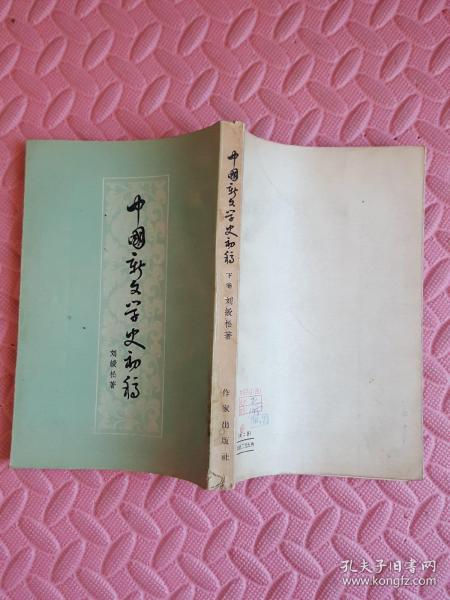 中國新文学史初稿
刘綬松著
中國新文学史初稿
下卷
刘綬松著
作家出版社
孔夫子旧书网
www.kongfz.com